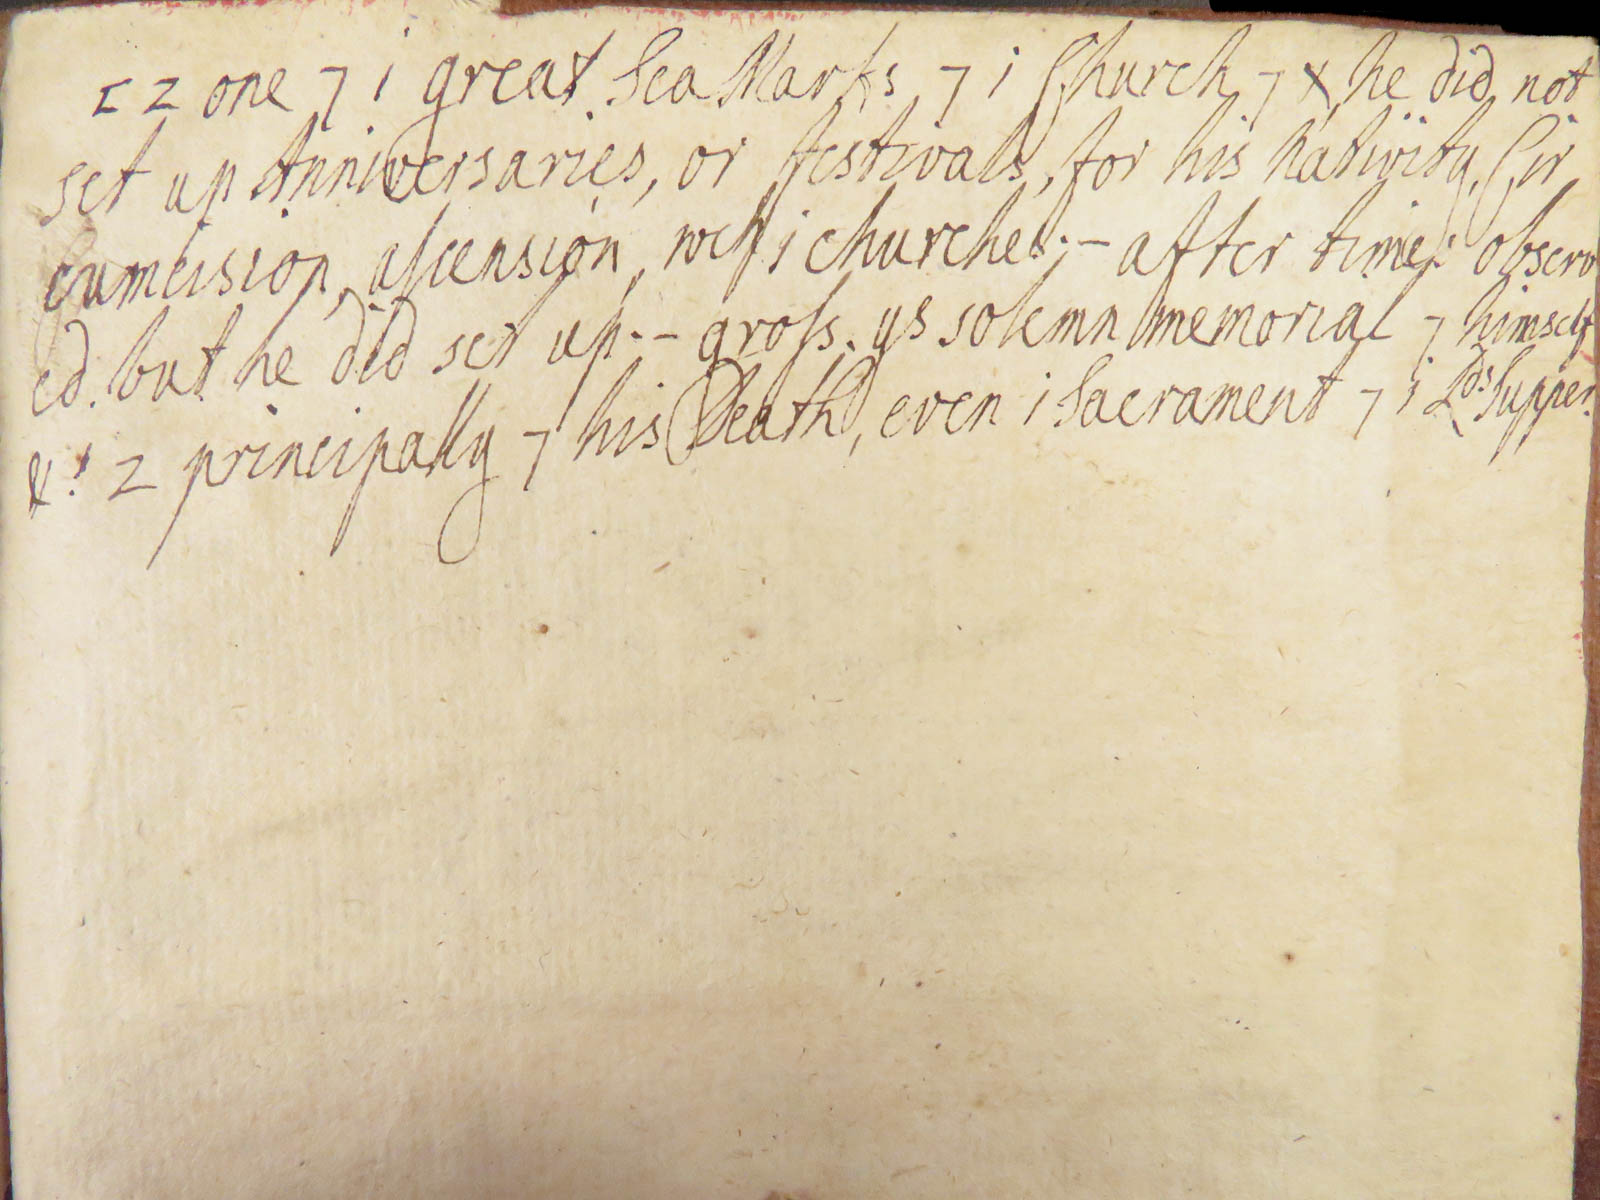 I Z one 7 i great Sea Marks 7 i Church 7 X, he did not
set up Anniversaries, or festivals, for his nativity, Cir
cumcision, ascension, wch i churches.- after times observ
ed. but he did set up.- gross. ys solemn memorial 7 himself
&! Z principally 7 his Death, even i Sacrament 7 i Lds Supper.